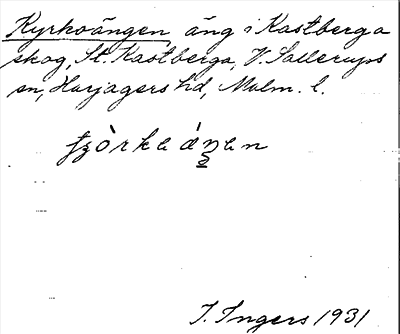 Kyrkoängen äng i Kastberga
skog, St. Kastberga, V. Sallerups
sn, Harjagers hd, Malm. l.
I. Ingers 1931